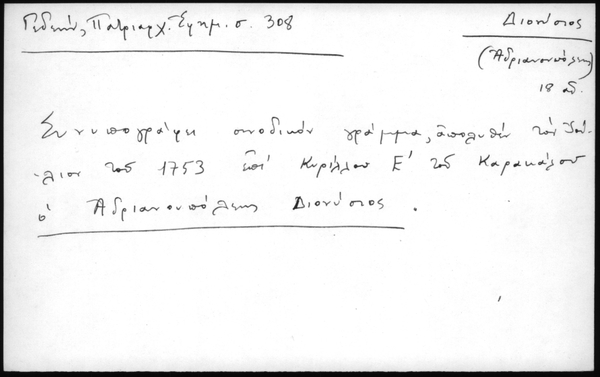 Γεδεών, Πατριαρχ. Ἐφημ. σ. 308
Διονύσιος
(Ἀδριανουπόλεως)
18 αἰ.
Συνυπογράφει συνοδικόν γράμμα, ἀπολυθέν τόν Ἰού-
λιον τοῦ 1753 ἐπί Κυρίλλου Ε' τοῦ Καρακάλου
ὁ Ἀδριανουπόλεως Διονύσιος .